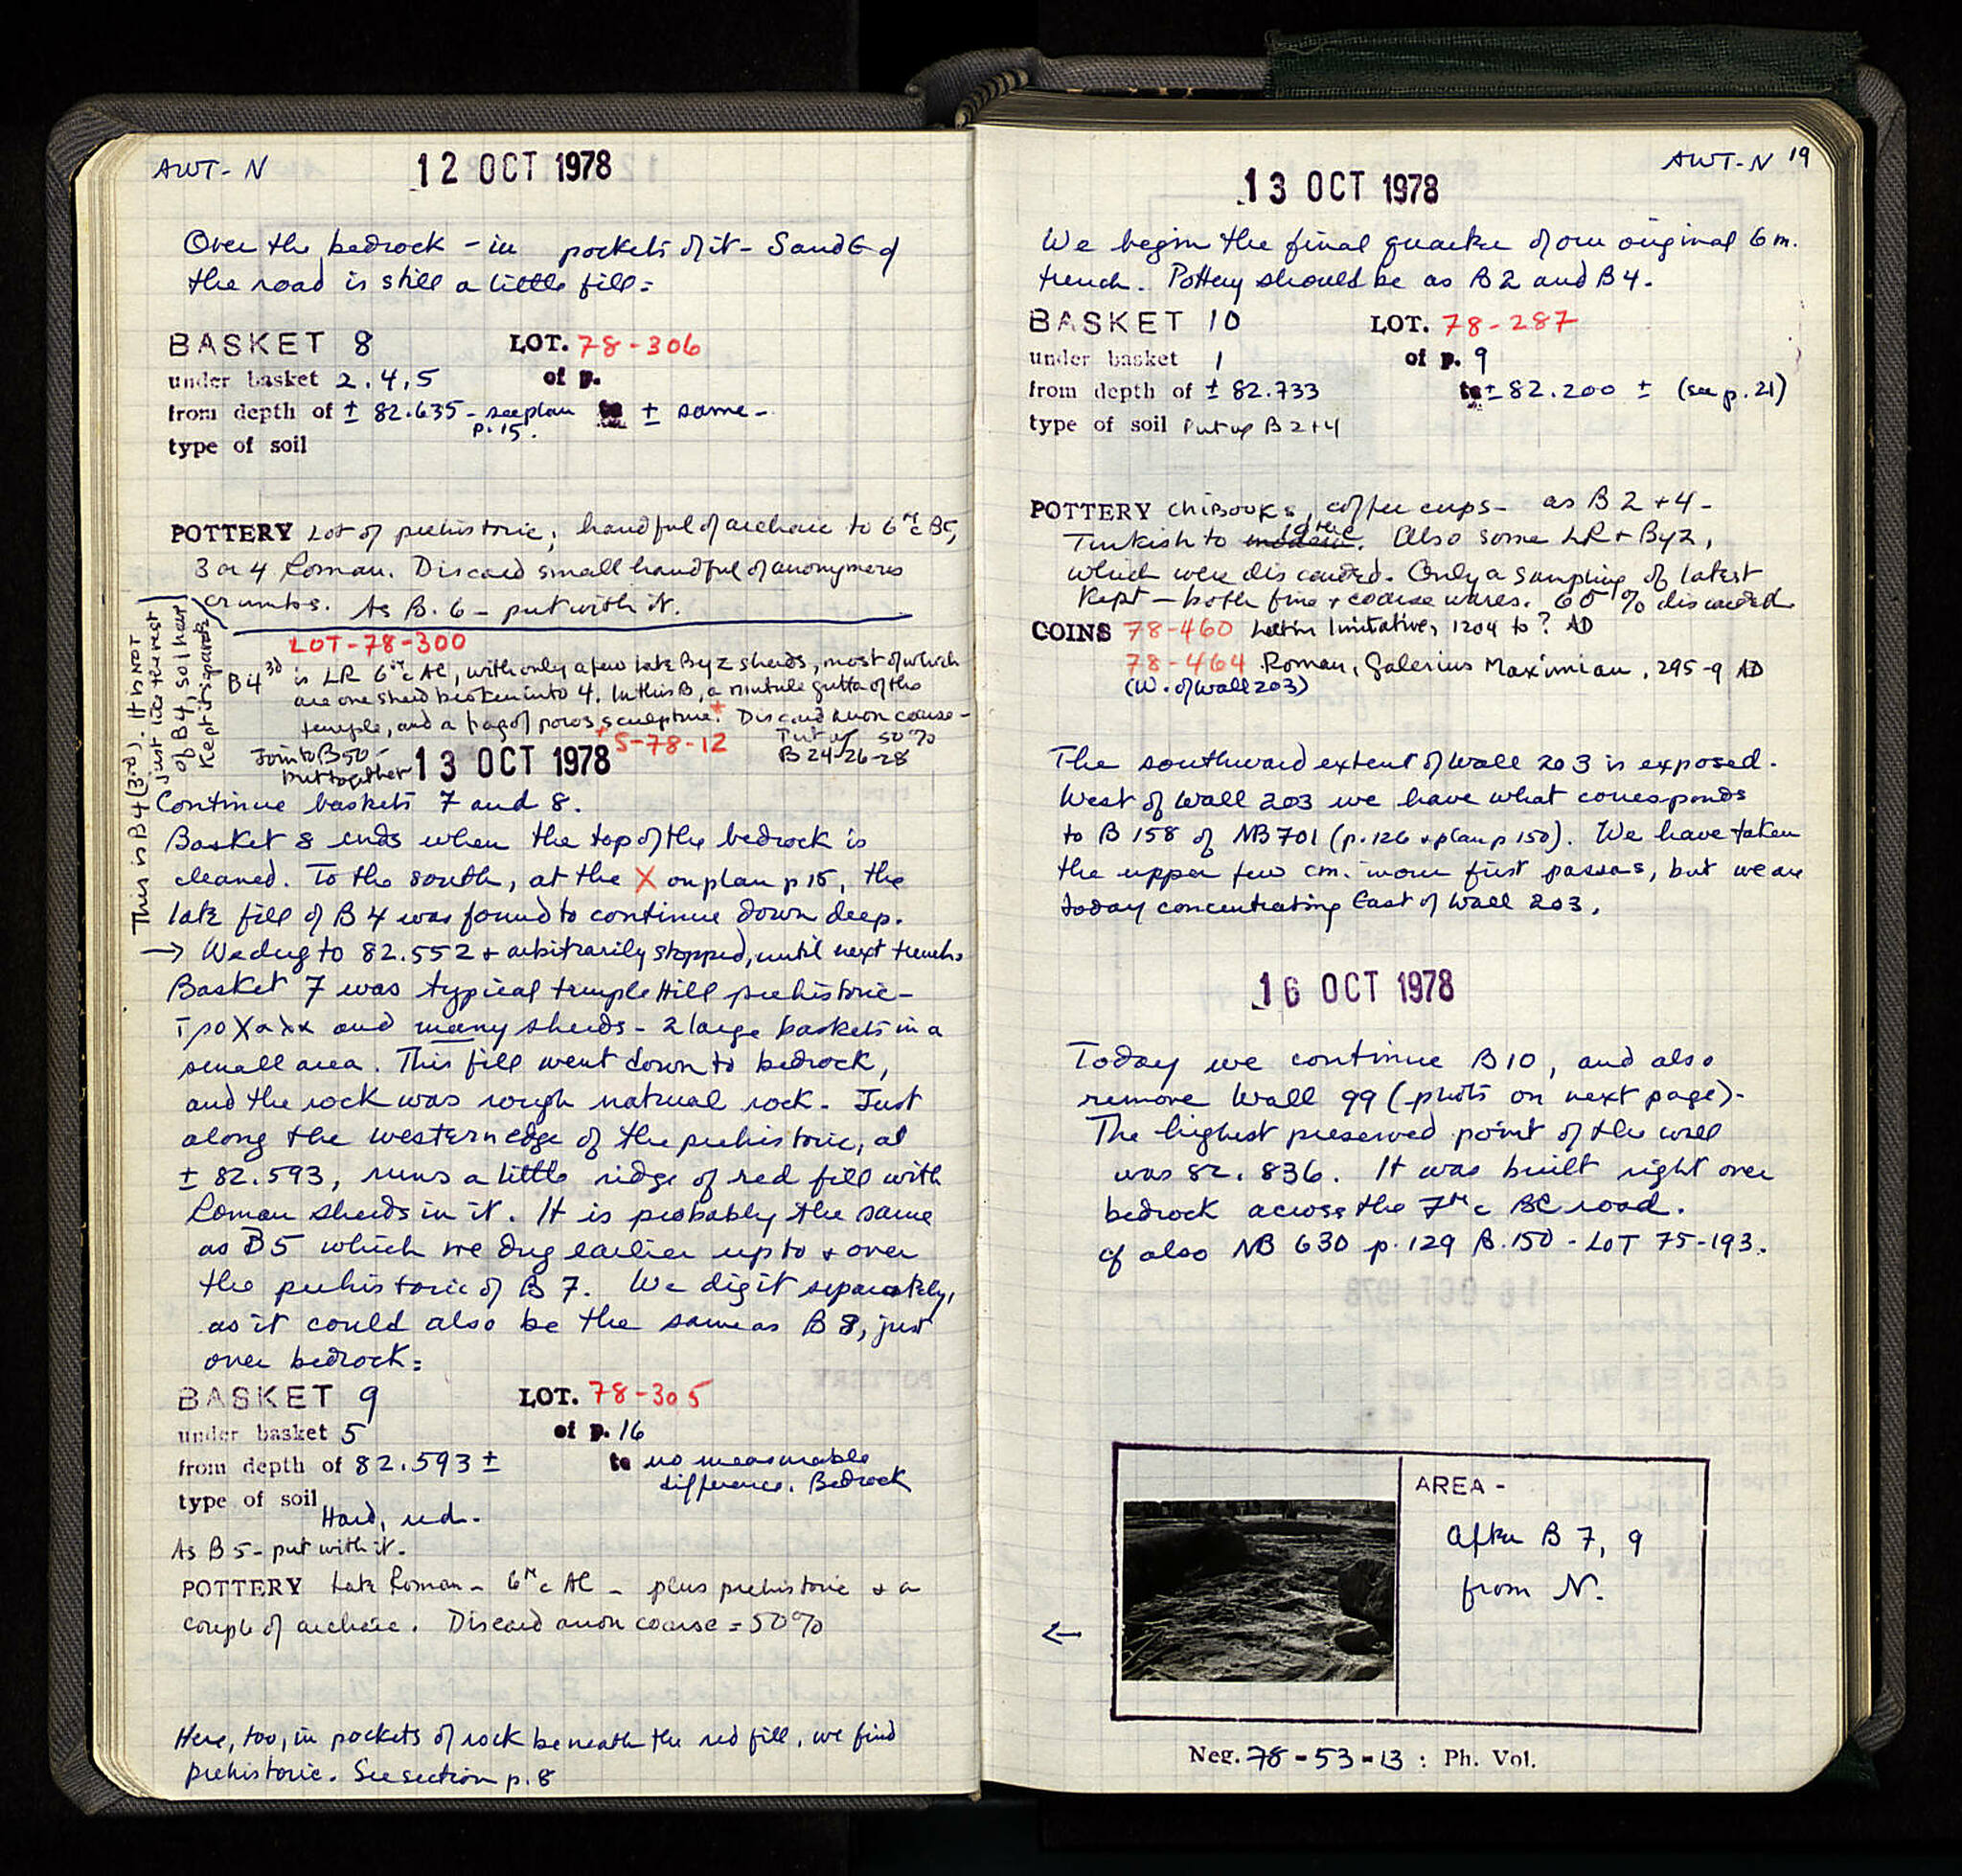 AWT-N
12 OCT 1978
Over the bedrock - in pockets of it - S and E of
the road is still a little fill:
BASKET 8 LOT. 78-306
under basket 2.4,5 of p.
from depth of ± 82.635 - see plan p. 15. to ± same -
type of soil
POTTERY Lot of prehistoric; handful of archaic to 6th c BC,
3 or 4 Roman. Discard small handful of anonymous
crumbs. As B. 6 - put with it.
LOT-78-300
B4 3d is LR 6th c AC, with only a few late Byz sherds, most of which
are one sherd broken into 4. In this B, a minute gutta of the
temple, and a frag of poros sculpture.* Discard anon coarse -
* S-78-12 50%
Join to B50 - Put w/
put together B 24-26-28
This is B4 (3rd). It is NOT
just like the rest
of B4, so I have
kept it separate
13 OCT 1978
Continue baskets 7 and 8.
Basket 8 ends when the top of the bedrock is
cleaned. To the south, at the X on plan p 15, the
late fill of B 4 was found to continue down deep.
→ We dug to 82.552 + arbitrarily stopped, until next trench.
Basket 7 was typical temple Hill prehistoric -
τροχαλα and many sherds - 2 large baskets in a
small area. This fill went down to bedrock,
and the rock was rough natural rock. Just
along the western edge of the prehistoric, at
± 82.593, runs a little ridge of red fill with
Roman sherds in it. It is probably the same
as B5 which we dug earlier up to + over
the prehistoric of B 7. We dig it separately,
as it could also be the same as B 8, just
over bedrock:
BASKET 9 LOT. 78-305
under basket 5 of p. 16
from depth of 82.593 ± to no measurable
difference. Bedrock
type of soil Hard, red.
As B 5 - put with it.
POTTERY Late Roman - 6th c AC - plus prehistoric + a
couple of archaic. Discard anon coarse = 50%
Here, too, in pockets of rock beneath the red fill, we find
prehistoric. See section p. 8
AWT-N 19
13 OCT 1978
We begin the final quarter of our original 6 m.
trench. Pottery should be as B 2 and B 4.
BASKET 10 LOT. 78-287
under basket 1 of p. 9
from depth of ± 82.733 to ± 82.200 ± (see p. 21)
type of soil Put w/ B 2+4
POTTERY chibouks, coffee cups - as B 2 + 4 -
Turkish to modern 19th c. Also some LR + Byz,
which were discarded. Only a sampling of latest
kept - both fine + coarse wares. 60% discarded
COINS 78-460 Latin Imitative, 1204 to ? AD
78-464 Roman, Galerius Maximian, 295-9 AD
(W. of wall 203)
The southward extent of Wall 203 is exposed.
West of Wall 203 we have what corresponds
to B 158 of NB 701 (p. 126 + plan p 150). We have taken
the upper few cm. in our first passes, but we are
today concentrating East of Wall 203.
16 OCT 1978
Today we continue B10, and also
remove Wall 99 (photo on next page).
The highest preserved point of the wall
was 82.836. It was built right over
bedrock across the 7th c BC road.
cf also NB 630 p. 129 B. 150 - LOT 75-193.
AREA -
After B 7, 9
from N.
←
Neg. 78-53-13 : Ph. Vol.